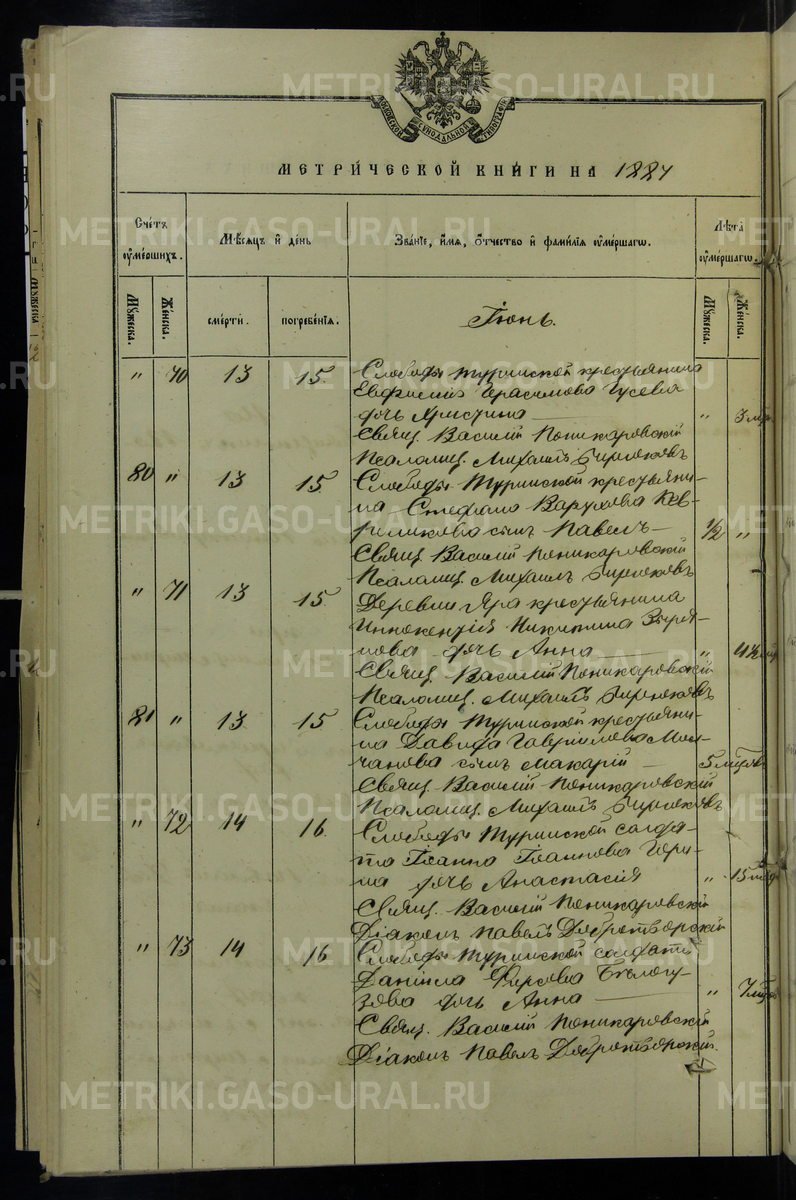 МЕТРИ́ЧЕСКОЙ КНИ́ГИ НА 1887
Сче́тъ ᲂу҆ме́ршихъ.
Мѣ́сяцъ и҆ де́нь
Зва́нїе, и҆́мя, ѻ҆́тчество и҆ фами́лїя ᲂу҆ме́ршагѡ.
Лѣта̀ ᲂу҆ме́ршагѡ.
Мꙋ́жеска.
Же́нска.
сме́рти.
погребе́нїя.
Мꙋ́жеска.
Же́нска.
Іюнь.
" 70 13 15 Слободы Туринской крестьянина
Евфимия Герасимова Гусева
дочь Христина — " 3
Свящ. Василій Поникаровскій
Псаломщ. Михаилъ
80 " 13 15 Слободы Туринской крестьяни-
на Стефана
сынъ Павелъ — 1/2 "
Свящ. Василій Поникаровскій
Псаломщ. Михаилъ
" 71 13 15 Деревни Яра крестьянина
Иннокентія Никитина Зыря-
нова дочь Анна — "
Свящ. Василій Поникаровскій
Псаломщ. Михаилъ
81 " 13 15 Слободы Туринской крестьяни-
на Давида Гавріилова Мол-
чанова сынъ Макарій — 5
Свящ. Василій Поникаровскій
Псаломщ. Михаилъ
" 72 14 16 Слободы Туринской солда-
та Іоанна Іоаннова
дочь Анастасія " 15
Свящ. Василій Поникаровскій
Діаконъ Павелъ Добротворскій
" 73 14 16 Слободы Туринской солдата
Даніила Фирсова Бѣлогу-
зова дочь Анна — " 7
Свящ. Василій Поникаровскій
Діаконъ Павелъ Добротворскій.
METRIKI.GASO-URAL.RU